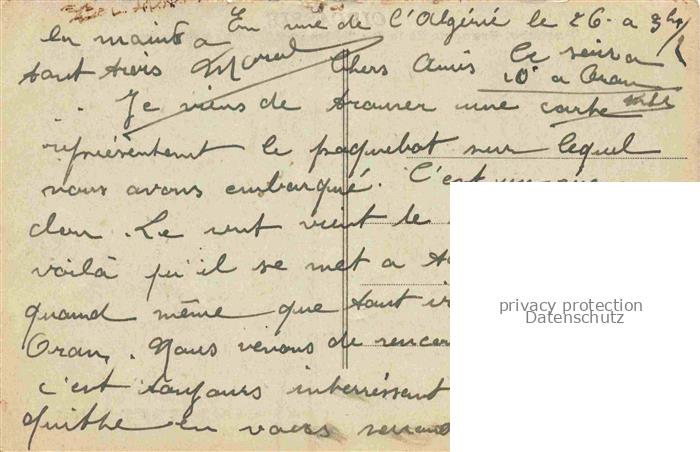 En vue de l'Algérie le 26. a 3h 1/2
en mains a
tant trois Moral Chers Amis Ce seira
10° a Oran
Je viens de trauver une carte
représentent le paquebot sur lequel
nous avons embarqué. C'est
clou. Le vent vient de
voilà qu'il se met a
quand même que tout
Oran. Nous venons de
c'est toujours interréssent
quitte en vous
privacy protection
Datenschutz